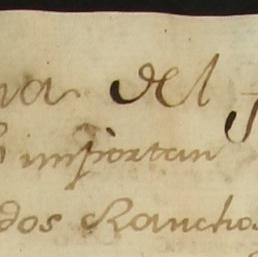 na del
importan
dos Ranchos